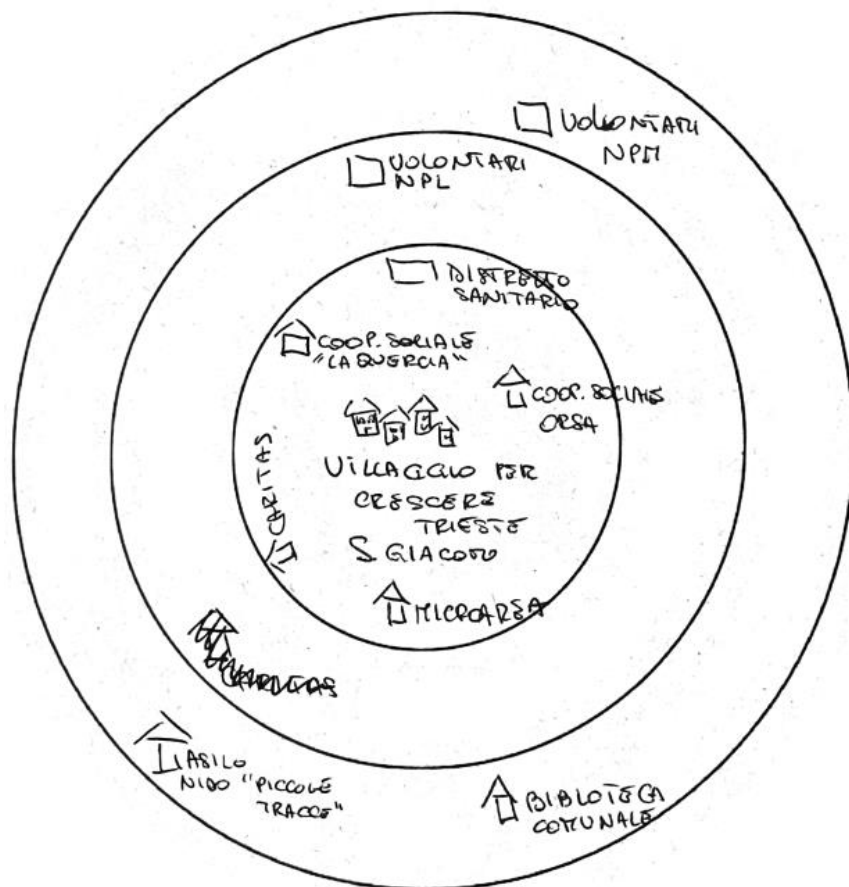 VOLONTARI
NPM
VOLONTARI
NPL
DISTRETTO
SANITARIO
COOP. SOCIALE
"LA QUERCIA"
COOP. SOCIALE
ORSA
CARITAS
VILLAGGIO PER
CRESCERE
TRIESTE
S. GIACOMO
MICROAREA
ASILO
NIDO "PICCOLE
TRACCE"
BIBLOTECA
COMUNALE